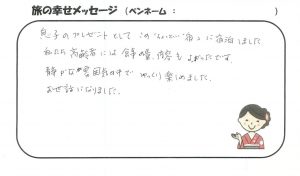 旅の幸せメッセージ（ペンネーム： ）
息子のプレゼントとして この 宿 に宿泊しました
私たち高齢者には 食事の量、内容も よかったです。
静かな雰囲気の中で ゆっくり楽しめました。
お世話になりました。